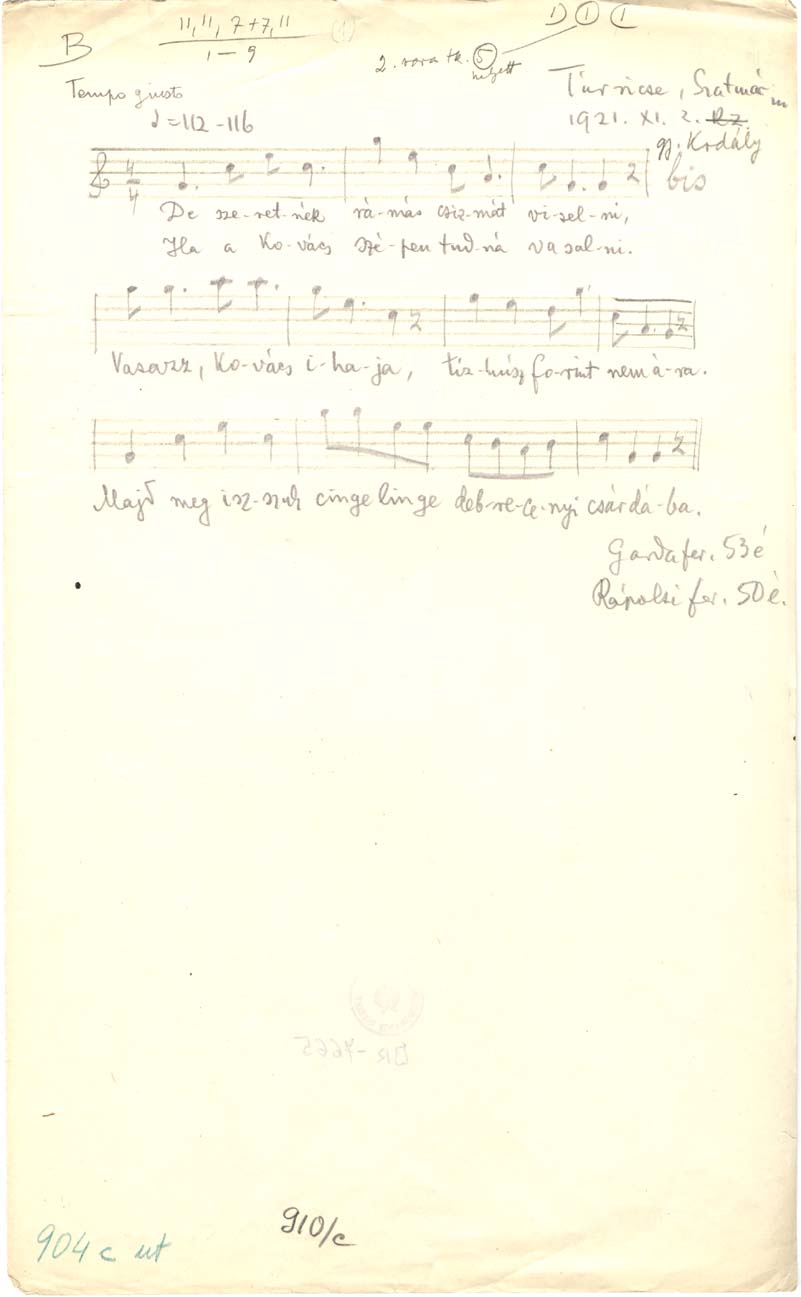 B
11, 11, 7+7, 11
1 – 9
(1)
2. sora tk. 5 helyett
1) 1 (1
Tempo giusto
Túrricse, Szatmár m
1921. XI. 2. Kz
gy. Kodály
♩=112-116
4/4
bis
De sze-ret-nék rá-más csiz-mát vi-sel-ni,
Ha a Ko-vács szé-pen tud-ná vasal-ni.
Vasazz, Ko-vács i-ha-ja, tíz-húsz fo-rint nem á-ra.
Majd meg isz-szuk cinge linge deb-re-ce-nyi csárdá-ba.
Garda fer. 53 é
Rápolti fer. 50 é.
BR-7665
910/c
904 c ut